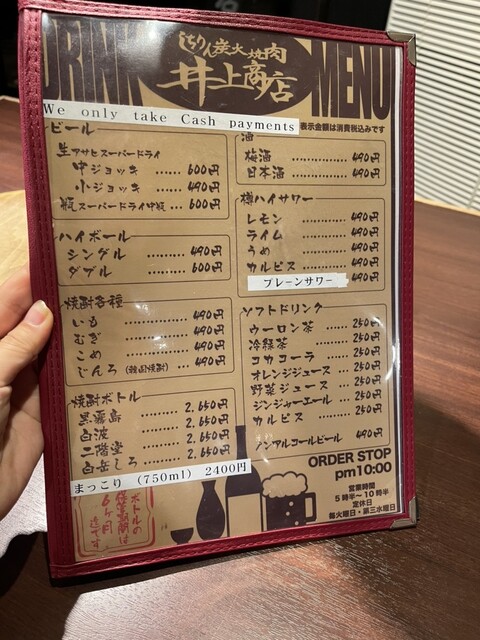 DRINK
しちりん炭火焼肉
井上商店
MENU
We only take Cash payments
表示金額は消費税込みです
ビール
生アサヒスーパードライ
中ジョッキ ...... 600円
小ジョッキ ...... 490円
瓶スーパードライ中瓶 ... 600円
ハイボール
シングル ......... 490円
ダブル ......... 600円
焼酎各種
いも ............ 490円
むぎ ............ 490円
こめ ............ 490円
じんろ (韓国焼酎) ... 490円
焼酎ボトル
黒霧島 ......... 2,650円
白波 ......... 2,650円
二階堂 ......... 2,650円
白岳しろ ......... 2,650円
まっこり (750ml) 2400円
ボトルの
6ヶ月
迄です
酒
梅酒 ............ 490円
日本酒 ......... 490円
樽ハイサワー
レモン ......... 490円
ライム ......... 490円
うめ ............ 490円
カルピス ......... 490円
プレーンサワー 490円
ソフトドリンク
ウーロン茶 ......... 250円
冷緑茶 ............ 250円
コカコーラ ......... 250円
オレンジジュース ...... 250円
野菜ジュース ...... 250円
ジンジャーエール ...... 250円
カルピス ......... 250円
ノンアルコールビール 490円
ORDER STOP
pm10:00
営業時間
5時半〜10時半
定休日
毎火曜日・第三水曜日